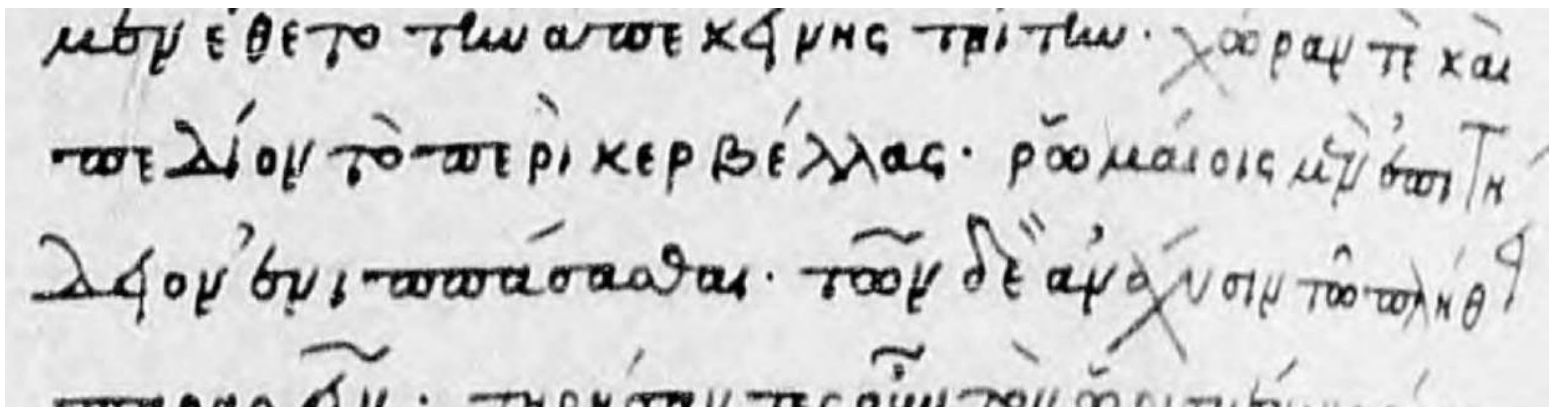 μὲν ἔθετο τὴν ἀπ' ἐκείνης τρίτην· χώραν τὲ καὶ
πεδίον τὸ περὶ κερβέλλας· ῥωμαίοις μὲν ἐπιτή
δειον ἐνιππάσασθαι· τῶν δὲ ἀνάχυσιν τῶ πλήθει